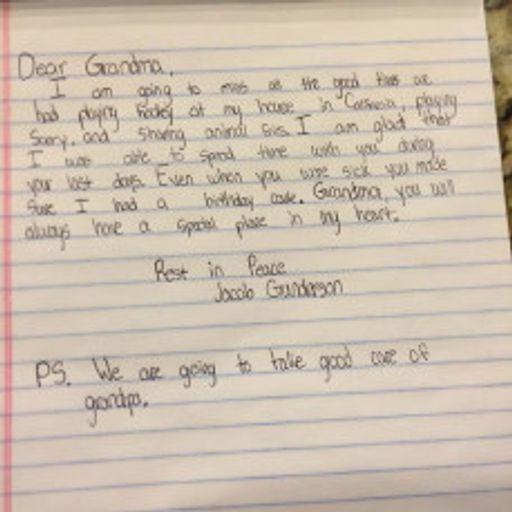 Dear Grandma,
I am going to miss all the good times we
had playing hockey at my house in California, playing
Sorry, and sharing animal I am glad that
I was able to spend time with you during
your last days. Even when you were sick you made
sure I had a birthday cake. Grandma, you will
always have a special place in my heart.
Rest in Peace
Jacob Gunderson
PS. We are going to take good care of
grandpa.